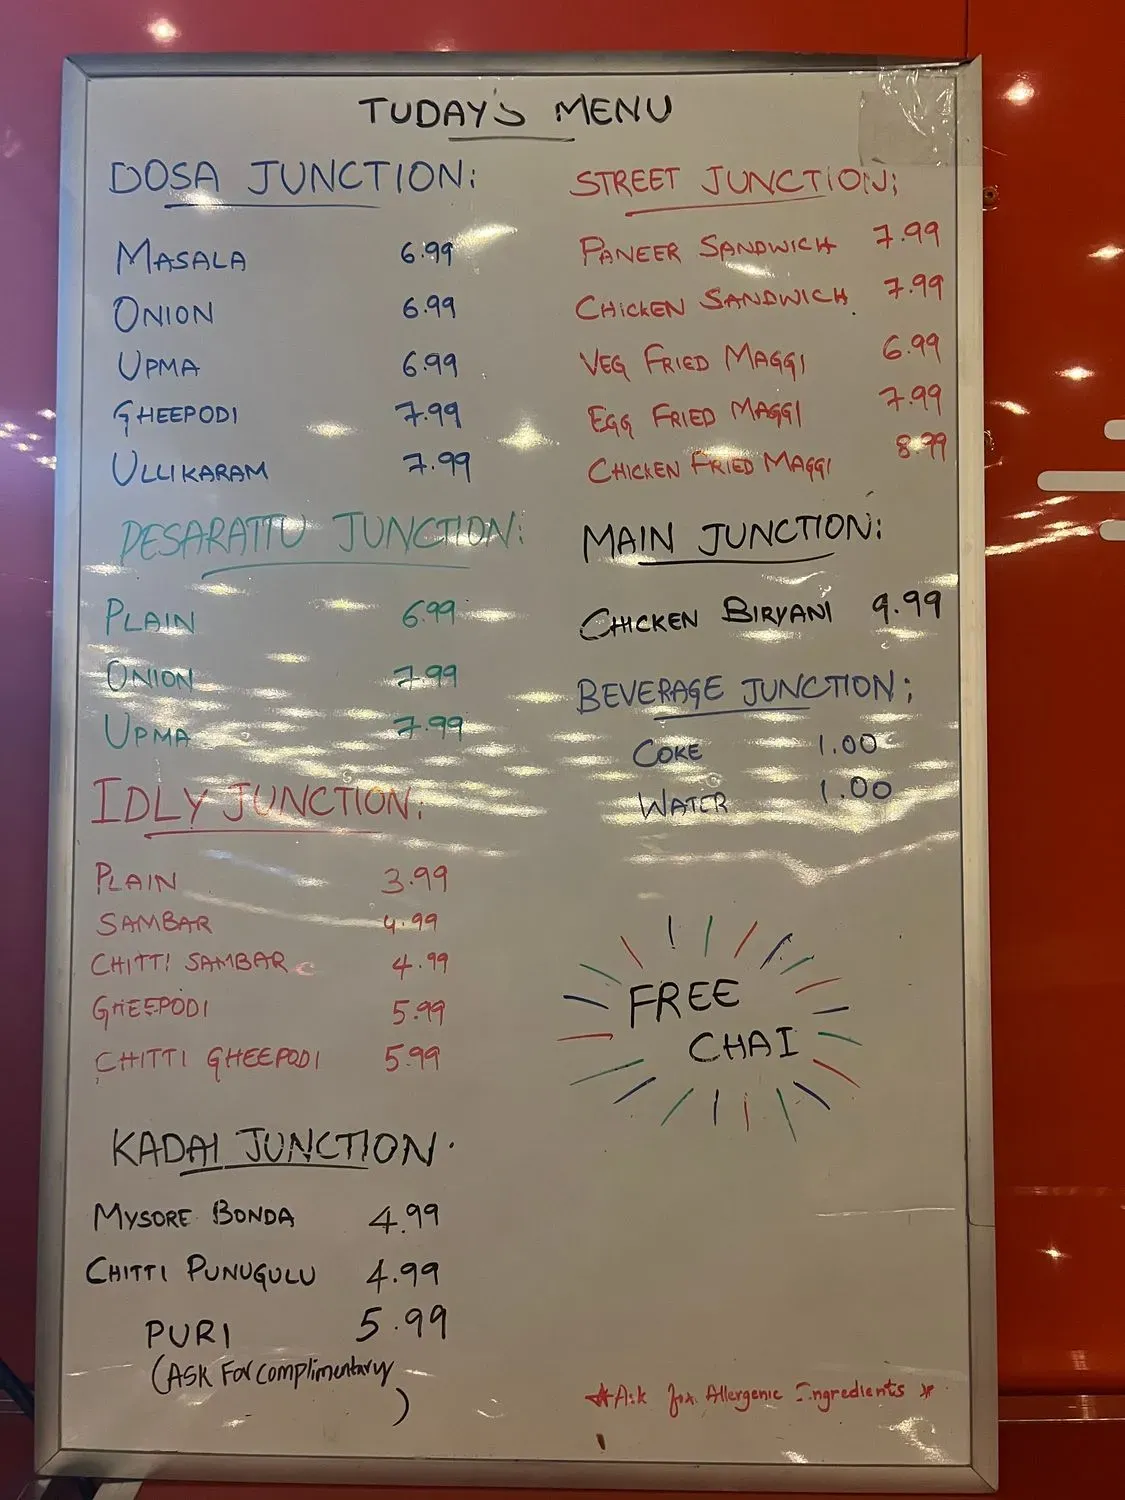 TUDAY'S MENU
DOSA JUNCTION:
MASALA 6.99
ONION 6.99
UPMA 6.99
GHEEPODI 7.99
ULLIKARAM 7.99
PESARATTU JUNCTION:
PLAIN 6.99
ONION 7.99
UPMA 7.99
IDLY JUNCTION:
PLAIN 3.99
SAMBAR 4.99
CHITTI SAMBAR 4.99
GHEEPODI 5.99
CHITTI GHEEPODI 5.99
KADAI JUNCTION.
MYSORE BONDA 4.99
CHITTI PUNUGULU 4.99
PURI 5.99
(ASK FOR complimentary
)
STREET JUNCTION:
PANEER SANDWICH 7.99
CHICKEN SANDWICH. 7.99
VEG FRIED MAGGI 6.99
EGG FRIED MAGGI 7.99
CHICKEN FRIED MAGGI 8.99
MAIN JUNCTION:
CHICKEN BIRYANI 9.99
BEVERAGE JUNCTION:
COKE 1.00
WATER 1.00
FREE
CHAI
*Ask for Allergenic Ingredients *